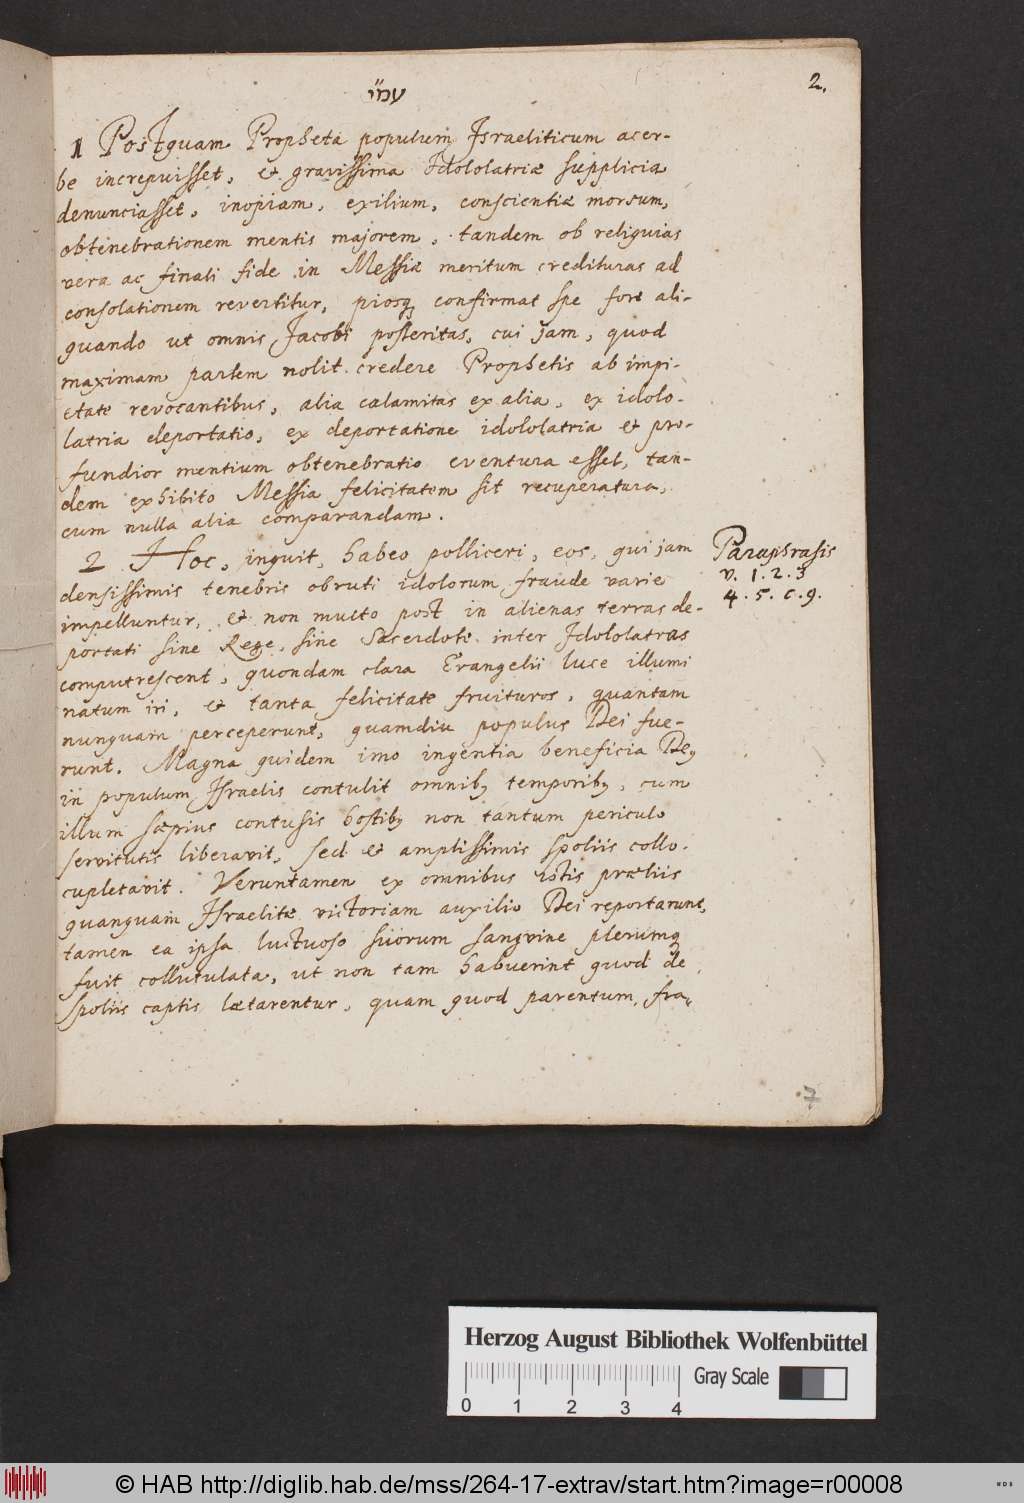 עמ״י
2.
1 Postquam Propheta populum Israeliticum acer-
be increpuisset, & gravissima Idololatriæ supplicia
denunciasset, inopiam, exilium, conscientiæ morsum,
obtenebrationem mentis majorem, tandem ob reliquias
vera ac finali fide in Messiæ meritum credituras ad
consolationem revertitur, piosq confirmat spe fore ali-
quando ut omnis Jacobi posteritas, cui jam, quod
maximam partem nolit credere Prophetis ab impi-
etate revocantibus, alia calamitas ex alia, ex idolo-
latria deportatio, ex deportatione idololatria & pro-
fundior mentium obtenebratio eventura esset, tan-
dem exhibito Messia felicitatem sit recuperatura,
cum nulla alia comparandam.
2 Hoc, inquit, habeo polliceri, eos, qui jam
densissimis tenebris obruti idolorum fraude varie
impelluntur, & non multo post in alienas terras de-
portati sine Rege, sine Sacerdote inter Idololatras
computrescent, quondam clara Evangelii luce illumi
natum iri, & tanta felicitate fruituros, quantam
nunquam perceperunt, quamdiu populus Dei fue-
runt. Magna quidem imo ingentia beneficia Deq
in populum Israelis contulit omnibq temporibq, cum
illum sæpius contusis hostibq non tantum periculo
servitutis liberavit, sed & amplissimis spoliis collo-
cupletavit. Veruntamen ex omnibus istis præliis
quanquam Israelitæ victoriam auxilio Dei reportarunt,
tamen ea ipsa luctuoso suorum sangvine plerumq
fuit collutulata, ut non tam habuerint quod de
spoliis captis lætarentur, quam quod parentum, fra-
Paraphrasis
v. 1. 2. 3
4. 5. c. 9.
7
Herzog August Bibliothek Wolfenbüttel
Gray Scale
0 1 2 3 4
© HAB http://diglib.hab.de/mss/264-17-extrav/start.htm?image=r00008